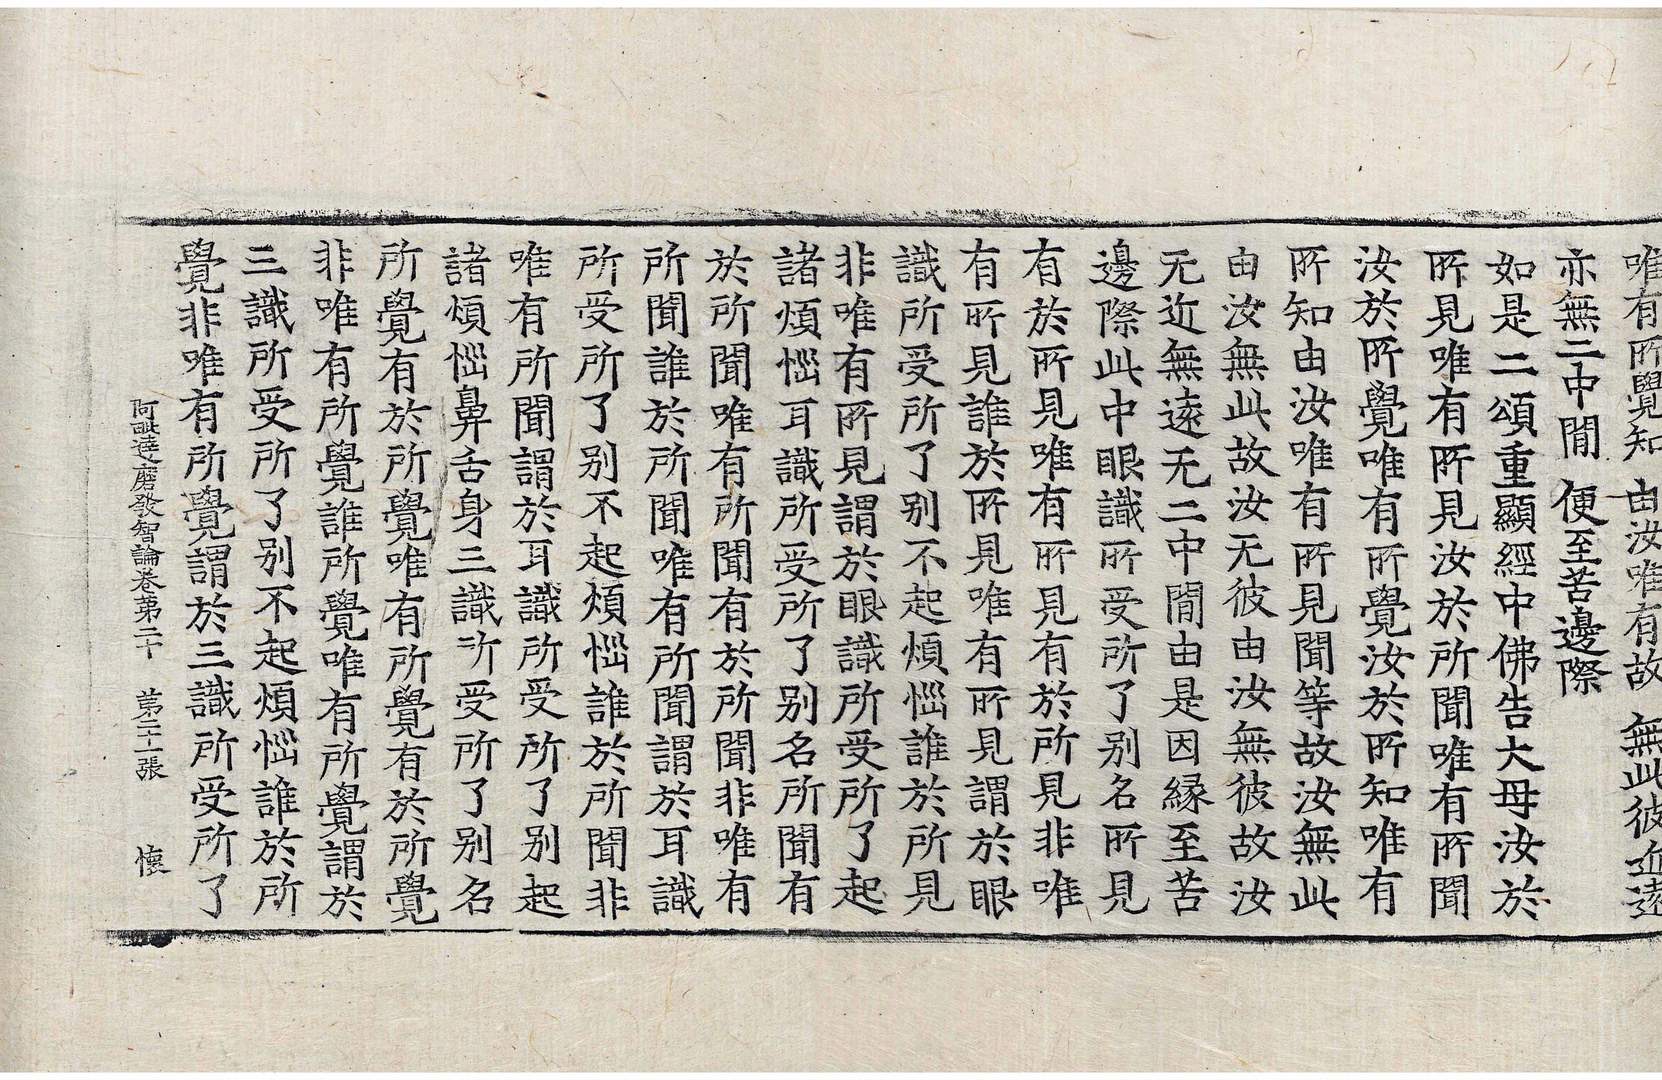 唯有所覺知　由汝唯有故　無此彼近遠
亦無二中閒　便至苦邊際
如是二頌重顯經中佛告大母汝於
所見唯有所見汝於所聞唯有所聞
汝於所覺唯有所覺汝於所知唯有
所知由汝唯有所見聞等故汝無此
由汝無此故汝无彼由汝無彼故汝
无近無遠无二中閒由是因緣至苦
邊際此中眼識所受所了别名所見
有於所見唯有所見有於所見非唯
有所見誰於所見唯有所見謂於眼
識所受所了别不起煩惱誰於所見
非唯有所見謂於眼識所受所了起
諸煩惱耳識所受所了别名所聞有
於所聞唯有所聞有於所聞非唯有
所聞誰於所聞唯有所聞謂於耳識
所受所了别不起煩惱誰於所聞非
唯有所聞謂於耳識所受所了别起
諸煩惱鼻舌身三識所受所了别名
所覺有於所覺唯有所覺有於所覺
非唯有所覺誰所覺唯有所覺謂於
三識所受所了别不起煩惱誰於所
覺非唯有所覺謂於三識所受所了
阿毗達磨發智論卷第二十　第二十一張　懷